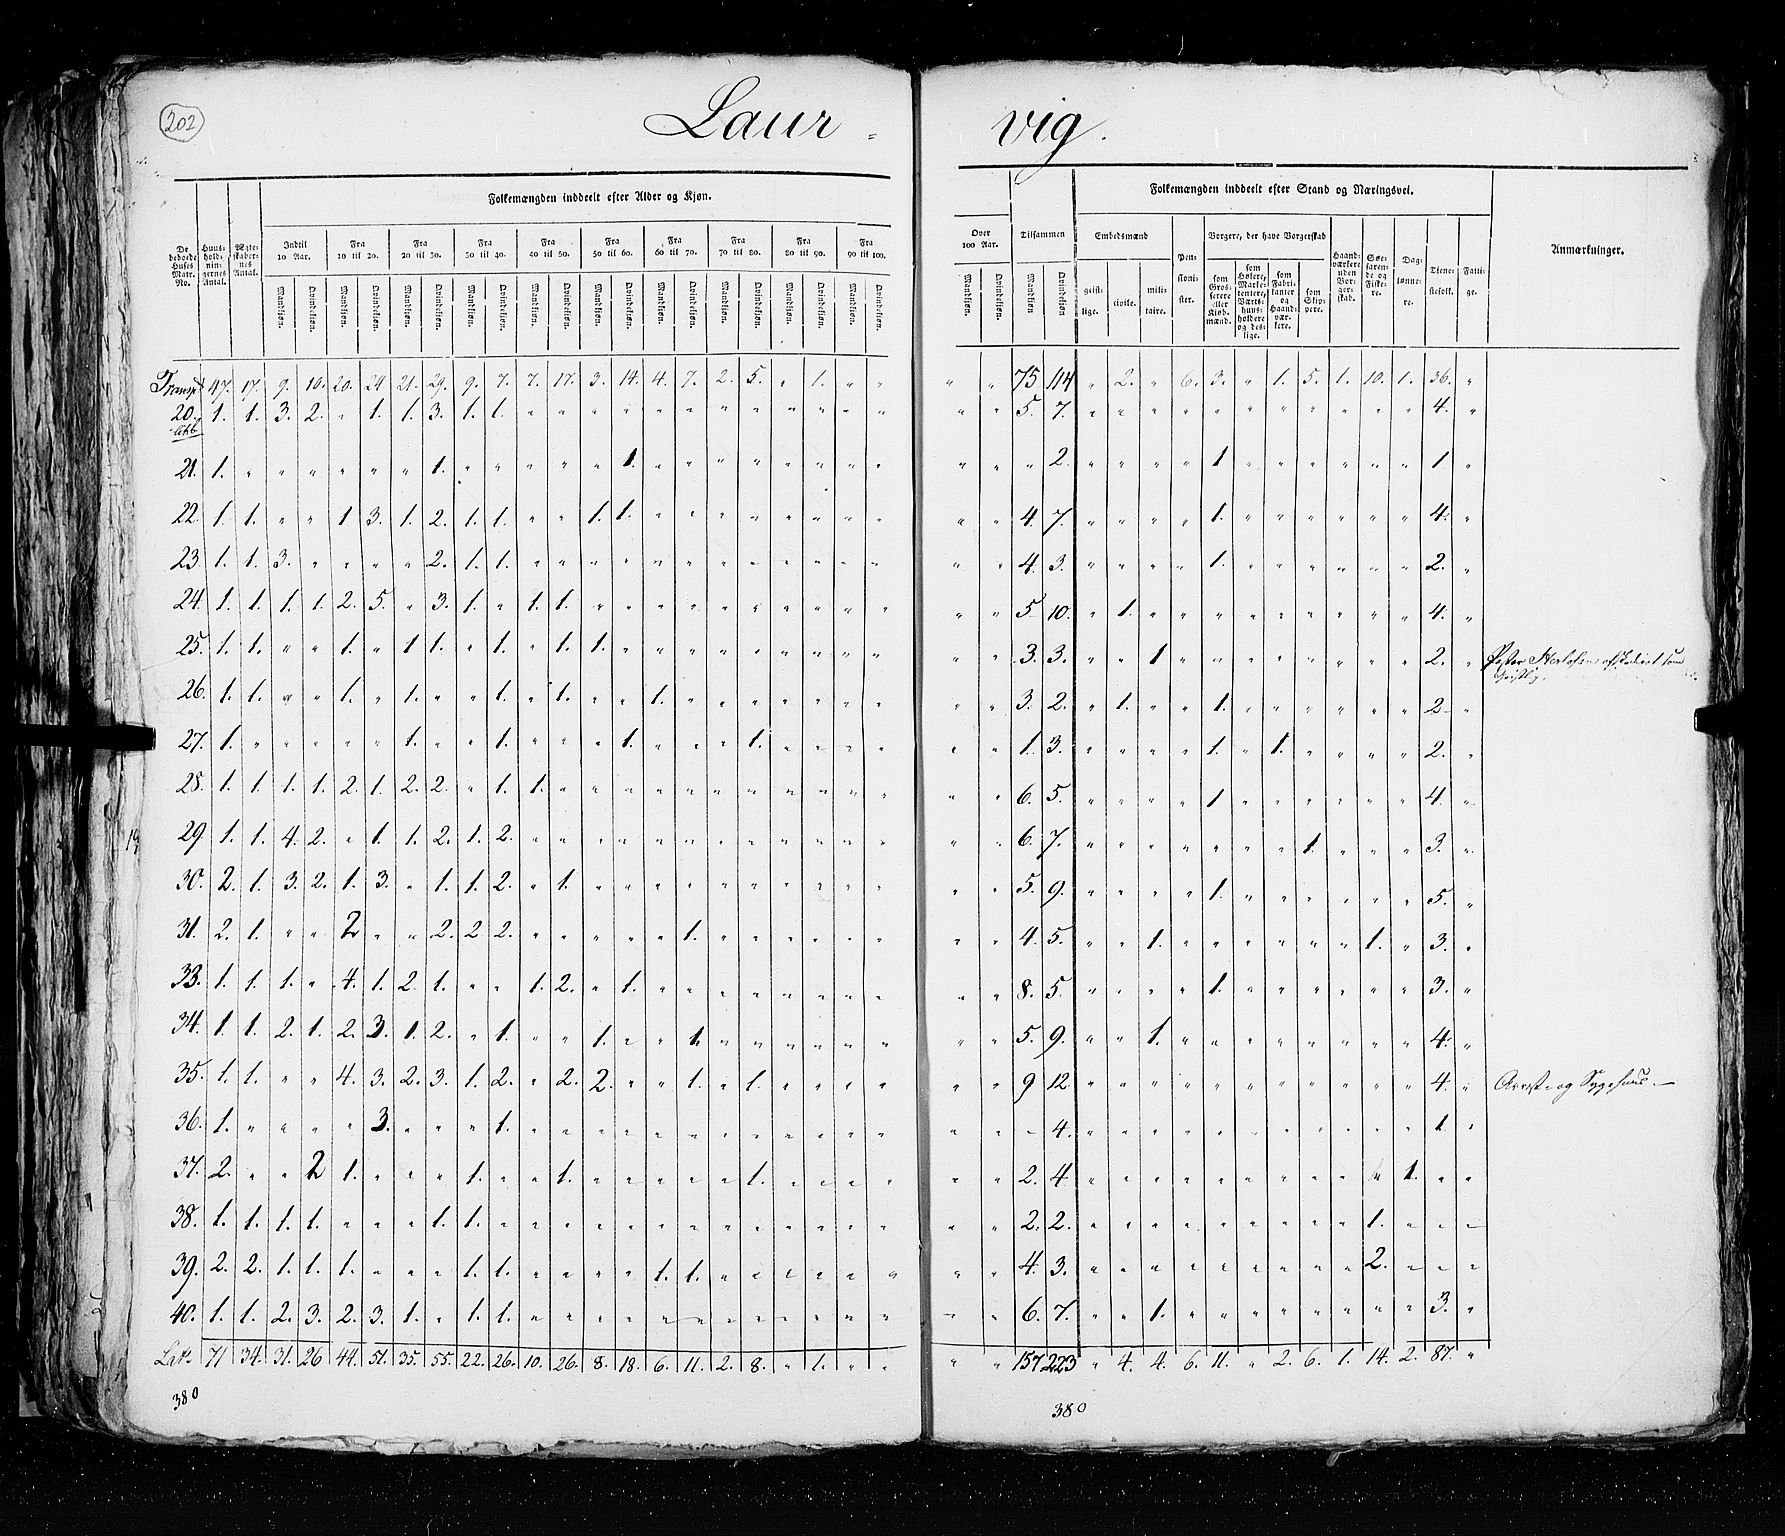 202
Laur- vig.
Folkemængden inddeelt efter Alder og Kjøn.
Folkemængden inddeelt efter Stand og Næringsvei.
De beboede Huses Matr. No. | Huus-hold-nin-gernes Antal. | Ægte-skaber-nes Antal. | Indtil 10 Aar. | Fra 10 til 20. | Fra 20 til 30. | Fra 30 til 40. | Fra 40 til 50. | Fra 50 til 60. | Fra 60 til 70. | Fra 70 til 80. | Fra 80 til 90. | Fra 90 til 100. | Over 100 Aar. | Tilsammen | Embedsmænd | Pen-sioni-ster. | Borgere, der have Borgerskab | Haand-værkere uden Bor-ger-skab. | Søe-faren-de og Fiske-re. | Dag-lønne-re. | Tjene-stefolk. | Fatti-ge. | Anmærkninger.
Mandkjøn. | Qvindekjøn. | Mandkjøn. | Qvindekjøn. | Mandkjøn. | Qvindekjøn. | Mandkjøn. | Qvindekjøn. | Mandkjøn. | Qvindekjøn. | Mandkjøn. | Qvindekjøn. | Mandkjøn. | Qvindekjøn. | Mandkjøn. | Qvindekjøn. | Mandkjøn. | Qvindekjøn. | Mandkjøn. | Qvindekjøn. | Mandkjøn. | Qvindekjøn. | Mandkjøn | Qvindekjøn. | geist-lige. | civile. | mili-taire. | som Gros-serere eller Kjøb-mænd. | som Høkere, Marke-tentere, Værts-huus-holdere og des-lige. | som Fabri-kanter og Haand-vær-kere. | som Skip-pere.
Transpt 47. 17. 9. 10. 20. 24 21. 29. 9. 7. 7. 17. 3. 14. 4. 7. 2. 5. " 1. " " " " 75 114 " 2. " 6. 3. " 1. 5. 1. 10. 1. 36. "
20. 1. 1. 3. 2. " 1. 1. 3. 1. 1. " " " " " " " " " " " " " " 5. 7. " " " " " " " " " " " 4. "
21. 1. " " " " " " 1. " " " " " 1. " " " " " " " " " " " 2. " " " " 1 " " " " " " 1 "
22. 1. 1. " " 1 3. 1. 2. 1. 1. " " 1. 1. " " " " " " " " " " 4. 7. " " " " 1. " " " " " " 4. "
23. 1. 1. 3. " " " " 2. 1. 1. " " " " " " " " " " " " " " 4. 3. " " " " 1. " " " " " " 2. "
24. 1. 1. 1. 1. 2. 5. " 3. 1. " 1. 1. " " " " " " " " " " " " 5 10. " 1. " " " " " " " " " 4. "
25. 1. 1. " " 1. " 1 1. " 1. " 1. 1. " " " " " " " " " " " 3. 3. " " 1 " " " " " " " " 2. "
26. 1. 1. " " 1. " 1. " " 1. " 1. " " 1. " " " " " " " " " 3. 2. " 1. " " 1. " " " " " " 2 "
27. 1. " " " " " 1. " " 1. " " " 1. " " " 1. " " " " " " 1. 3. " " " " 1. " 1. " " " " 2. "
28. 1. 1. 1. 1. 2. 1. 2. 2. " 1. 1. " " " " " " " " " " " " " 6. 5. " " " " 1 " " " " " " 4. "
29. 1. 1. 4. 2. " 1. 1. 2. 1. 2. " " " " " " " " " " " " " " 6. 7. " " " " " " " 1. " " " 3. "
30. 2. 1. 3. 2. 1. 3. " 1. 1. 2. " 1. " " " " " " " " " " " " 5. 9. " " " " 1. " " " " " " 5. "
31. 2. 1. " " 2 " " 2. 2 2. " " " " " 1. " " " " " " " " 4. 5. " " 1. " " " " " " 1. " 3. "
33. 1. 1. 1. " 4. 1. 2. 1. " " 1. 2. " 1. " " " " " " " " " " 8. 5. " " " " 1. " " " " " " 3. "
34. 1. 1. 2. 1. 2. 3. 1. 2. " 1. " " 1. " " 1. " " " " " " " " 5. 9. " " 1. " " " " " " " " 4. "
35. 1. 1. " " 4. 3. 2. 3. 1. 2. " 2. 2. " " 1. " 1. " " " " " " 9 12. " " " " " " " " " " " 4. " Arrest- og Sygehuus.
36. 1. " " " " 3. " " " 1. " " " " " " " " " " " " " " " 4. " " " " " " " " " " " 1. "
37. 2. " " 2 1. " " " 1. " " 1. " " " " " 1. " " " " " " 2. 4 " " " " " " " " " " 1. " "
38. 1. 1. 1. 1. " " " 1. 1. " " " " " " " " " " " " " " " 2. 2. " " " " " " " " " 1. " " "
39. 2. 2. 1. 1. 1. " " " 1. 1. " " " " 1. 1. " " " " " " " " 4. 3. " " " " " " " " " 2. " " "
40. 1. 1. 2. 3. 2. 3. 1. " 1. 1. " " " " " " " " " " " " " " 6. 7. " " 1. " " " " " " " " 3. "
Lat. 71 34. 31. 26 44. 51. 35. 55. 22. 26. 10. 26. 8. 18. 6. 11. 2. 8. " 1. " " " " 157 223 " 4. 4. 6. 11. " 2. 6. 1. 14. 2. 87. "
380
380